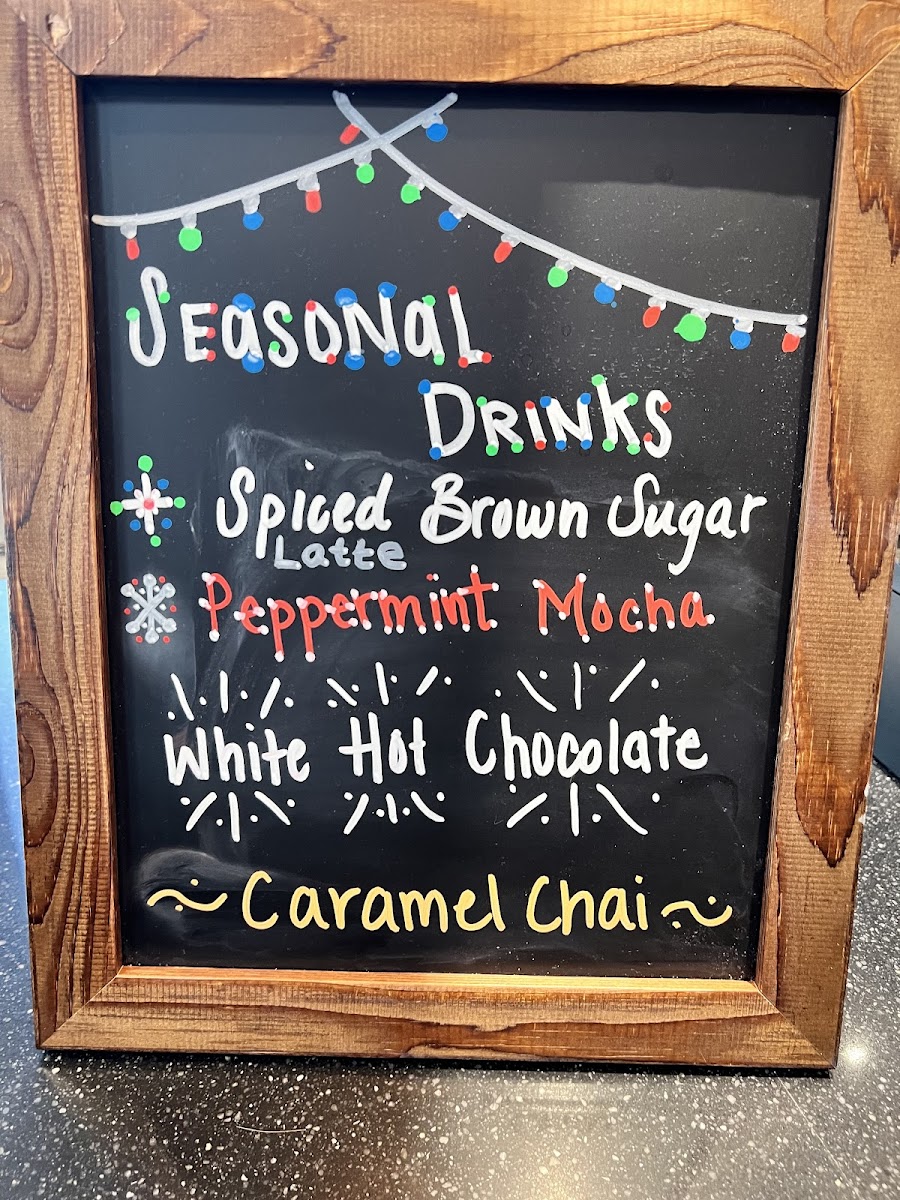 Seasonal
Drinks
Spiced Brown Sugar
Latte
Peppermint Mocha
White Hot Chocolate
~ Caramel Chai ~